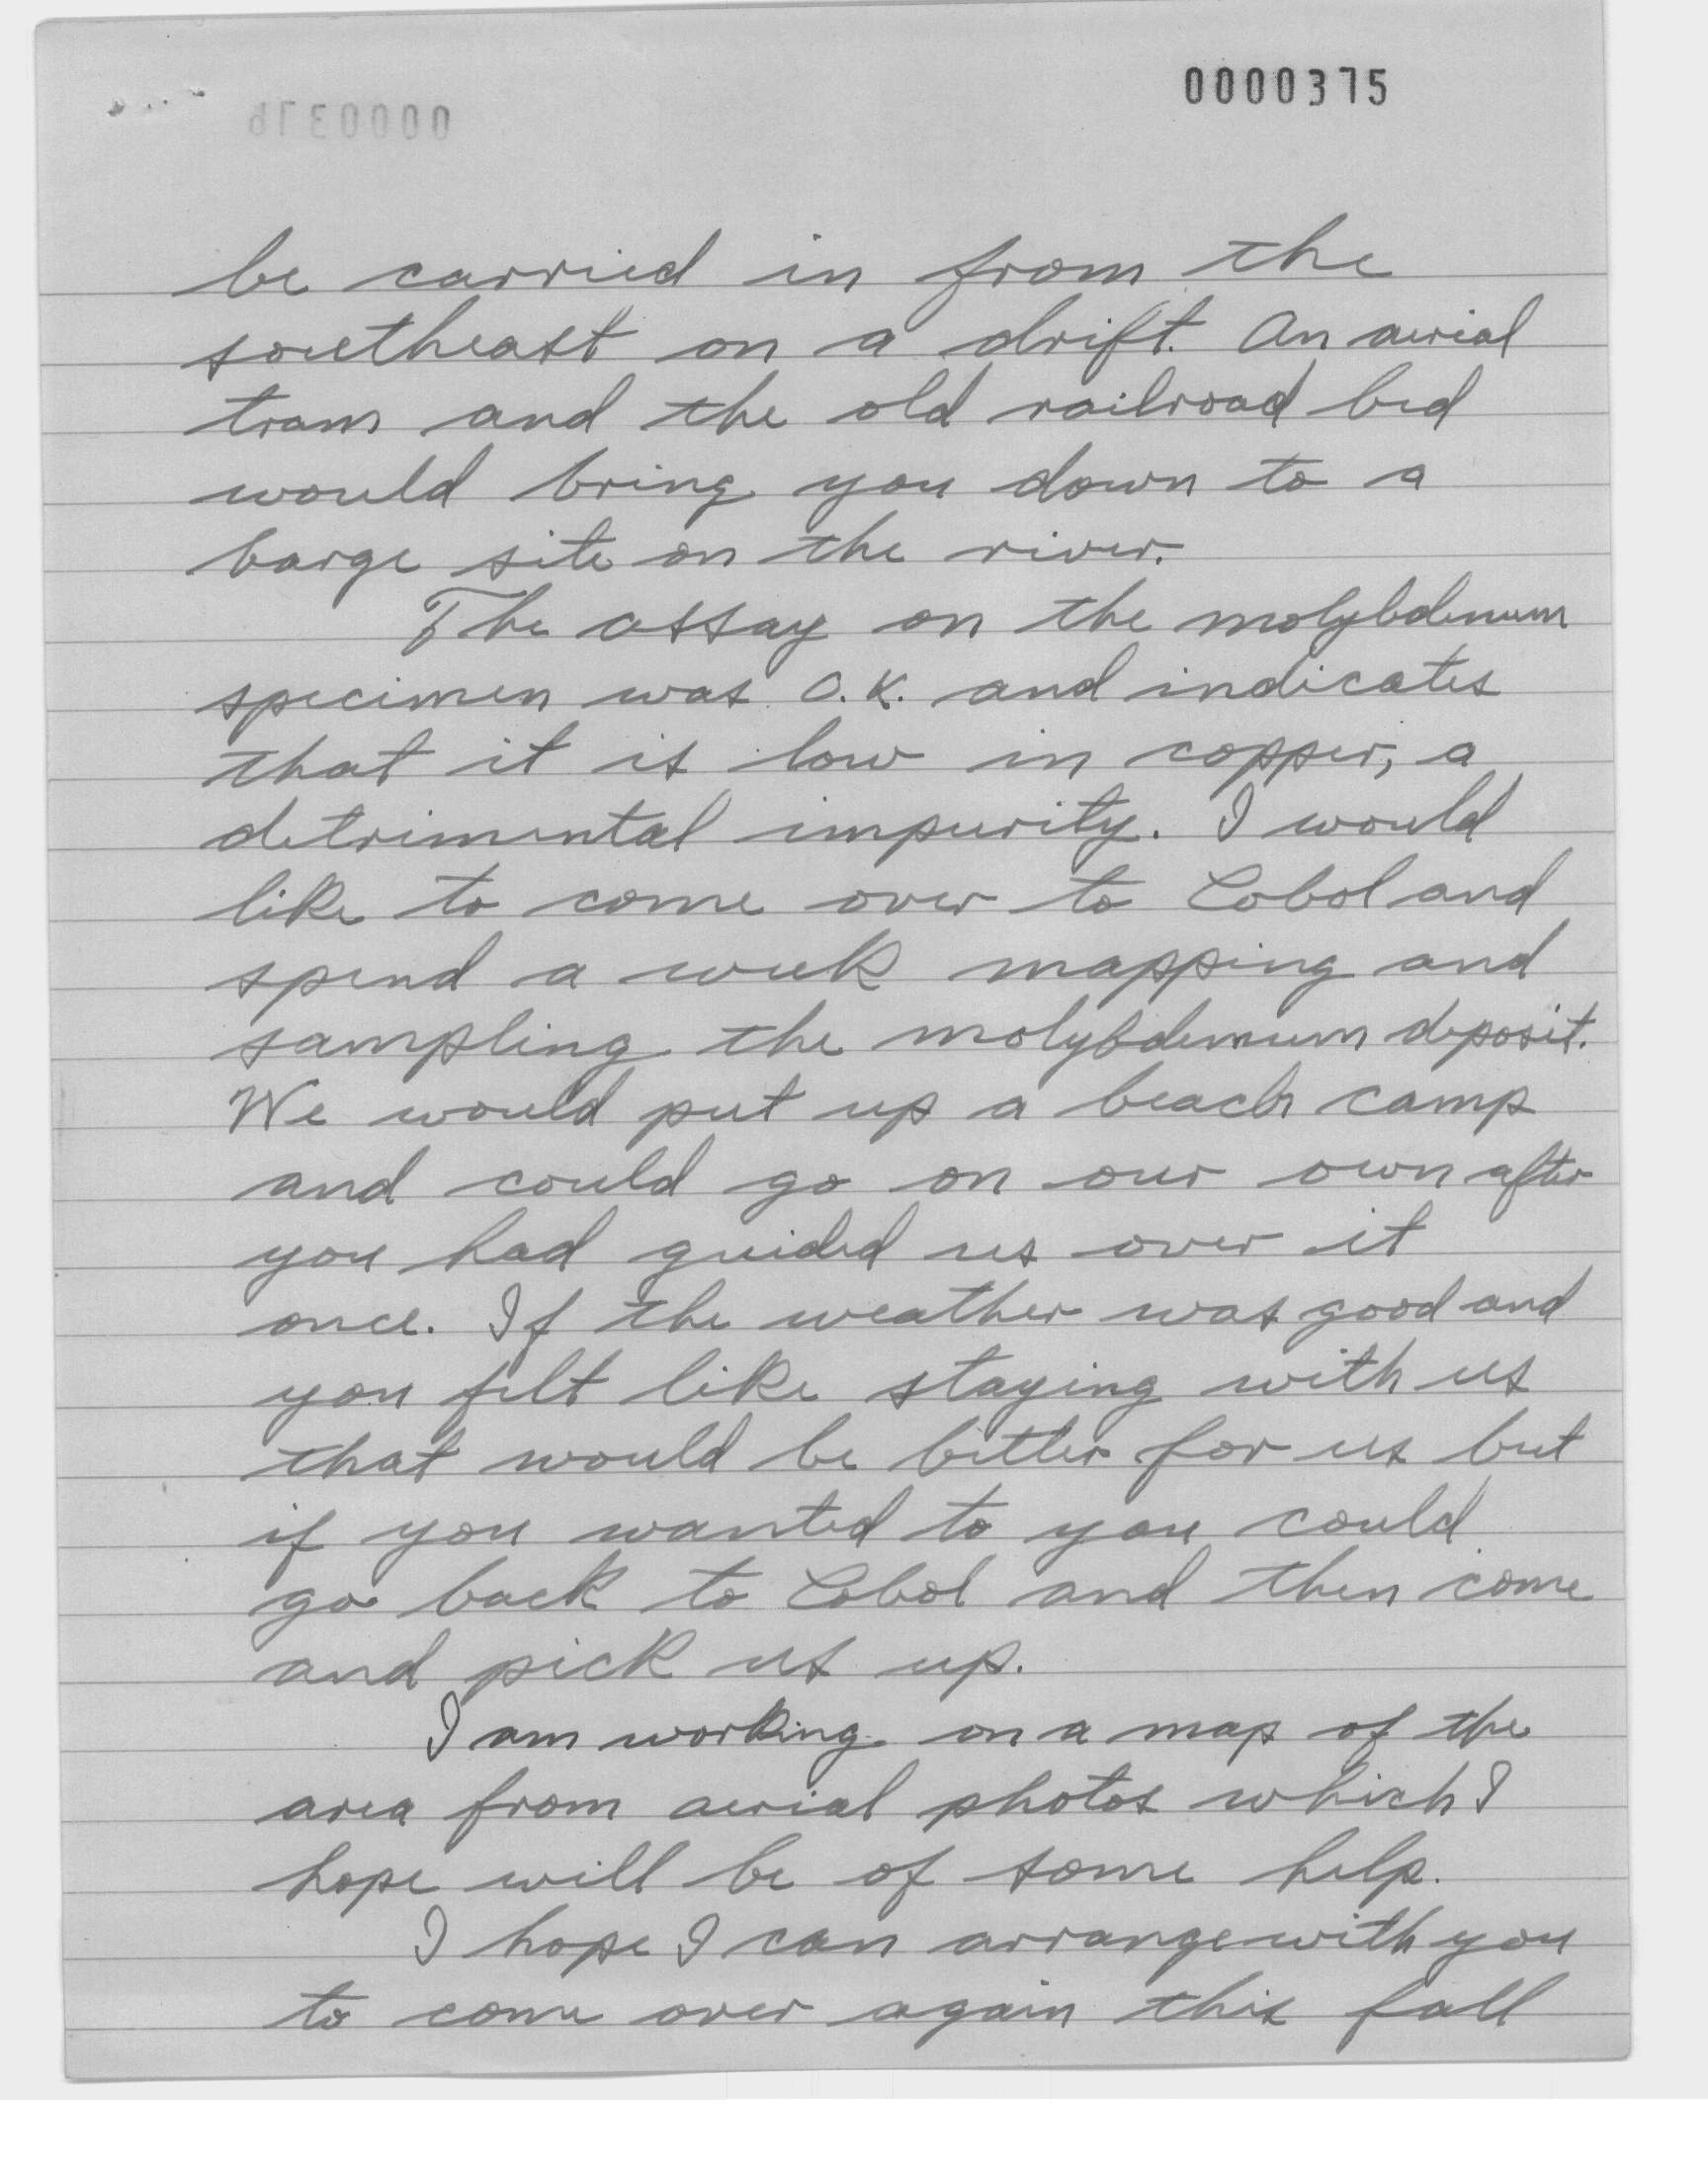 0000375
0000376
be carried in from the
southeast on a drift. An aerial
tram and the old railroad bed
would bring you down to a
barge site on the river.
The assay on the molybdenum
specimen was O.K. and indicates
that it is low in copper, a
detrimental impurity. I would
like to come over to Cobol and
spend a week mapping and
sampling the molybdenum deposit.
We would put up a beach camp
and could go on our own after
you had guided us over it
once. If the weather was good and
you felt like staying with us
that would be better for us but
if you wanted to you could
go back to Cobol and then come
and pick us up.
I am working on a map of the
area from aerial photos which I
hope will be of some help.
I hope I can arrange with you
to come over again this fall